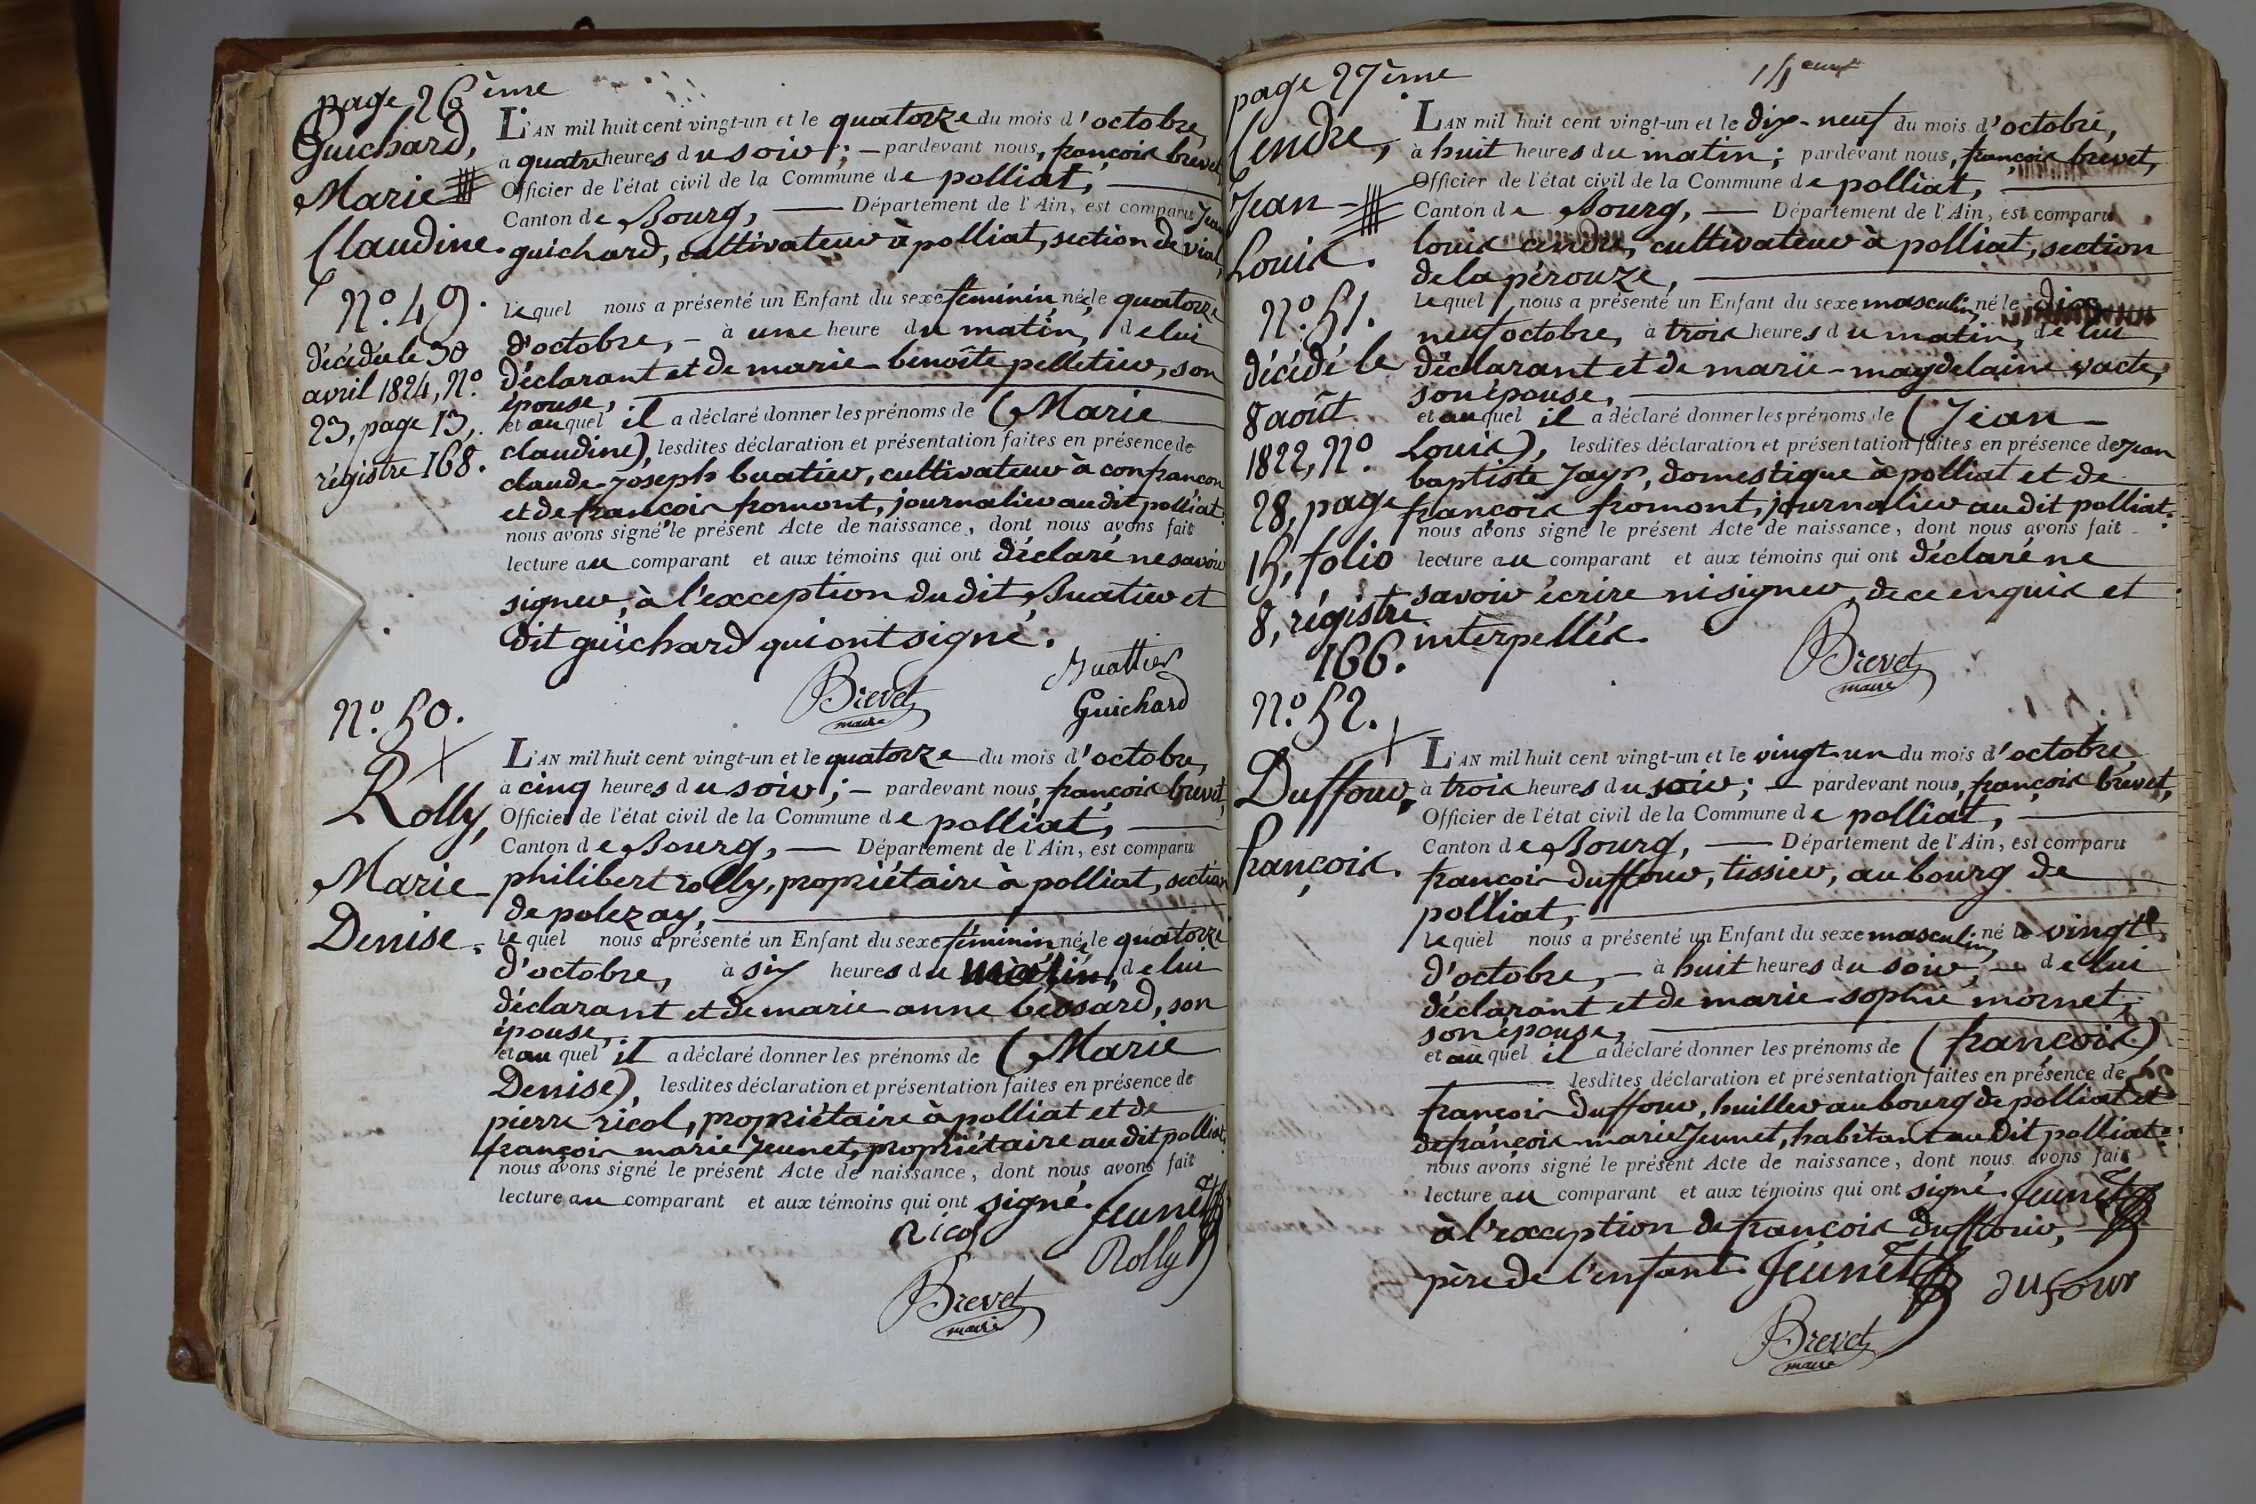 page 26ème
Guichard,
Marie
Claudine.
N.o 49.
décédée le 30
avril 1824, N.o
23, page 13,
régistre 168.
L'AN mil huit cent vingt-un et le quatorze du mois d'octobre,
à quatre heures du soir; - pardevant nous, françois brevet,
Officier de l'état civil de la Commune de polliat,
Canton de Bourg, — Département de l'Ain, est comparu Jean
guichard, cultivateur à polliat, section de vial,
lequel nous a présenté un Enfant du sexe féminin, née le quatorze
d'octobre, - à une heure du matin, de lui
déclarant et de marie-benoîte pelletier, son
épouse,
et auquel il a déclaré donner les prénoms de (Marie
claudine), lesdites déclaration et présentation faites en présence de
claude-joseph buatier, cultivateur à confrançon
et de françois fromont, journalier audit polliat.
nous avons signé le présent Acte de naissance, dont nous avons fait
lecture au comparant et aux témoins qui ont déclaré ne savoir
signer, à l'exception du dit Buatier et
dit guichard qui ont signé.
Buattier
Brevet
maire
Guichard
N.o 50.
Rolly,
Marie
Denise.
L'AN mil huit cent vingt-un et le quatorze du mois d'octobre,
à cinq heures du soir; - pardevant nous, françois brevet,
Officier de l'état civil de la Commune de polliat,
Canton de Bourg, — Département de l'Ain, est comparu
philibert rolly, propriétaire à polliat, section
de polezay,
lequel nous a présenté un Enfant du sexe féminin, née le quatorze
d'octobre, à six heures du matin, de lui
déclarant et de marie anne bessard, son
épouse,
et auquel il a déclaré donner les prénoms de (Marie
Denise), lesdites déclaration et présentation faites en présence de
pierre ricol, propriétaire à polliat et de
françois marie Jeunet, propriétaire audit polliat,
nous avons signé le présent Acte de naissance, dont nous avons fait
lecture au comparant et aux témoins qui ont signé. Jeunet
Ricol
Rolly
Brevet
maire
page 27ème
Cendre,
Jean -
Louis.
N.o 51.
décédé le
8 août
1822, N.o
28, page
15, folio
8, régistre
166.
L'AN mil huit cent vingt-un et le dix-neuf du mois d'octobre,
à huit heures du matin; pardevant nous, françois brevet,
Officier de l'état civil de la Commune de polliat,
Canton de Bourg, — Département de l'Ain, est comparu
louis cendre, cultivateur à polliat, section
de la pérouze,
lequel nous a présenté un Enfant du sexe masculin, né le dix
neuf octobre, à trois heures du matin, de lui
déclarant et de marie-magdelaine vacte,
son épouse,
et auquel il a déclaré donner les prénoms de (Jean-
Louis), lesdites déclaration et présentation faites en présence de jean
baptiste Jayr, domestique à polliat et de
françois fromont, journalier audit polliat.
nous avons signé le présent Acte de naissance, dont nous avons fait
lecture au comparant et aux témoins qui ont déclaré ne
savoir écrire ni signer, de ce enquis et
interpellés.
Brevet
maire
N.o 52.
Duffour,
françois.
L'AN mil huit cent vingt-un et le vingt-un du mois d'octobre,
à trois heures du soir; - pardevant nous, françois brevet,
Officier de l'état civil de la Commune de polliat,
Canton de Bourg, — Département de l'Ain, est comparu
françois duffour, tissier, au bourg de
polliat,
lequel nous a présenté un Enfant du sexe masculin, né le vingt
d'octobre, - à huit heures du soir, - de lui
déclarant et de marie-sophie mornet,
son épouse,
et auquel il a déclaré donner les prénoms de (françois)
lesdites déclaration et présentation faites en présence de
françois duffour, huillier au bourg de polliat et
de françois-marie Jeunet, habitant audit polliat.
nous avons signé le présent Acte de naissance, dont nous avons fait
lecture au comparant et aux témoins qui ont signé. Jeunet
à l'exception de françois duffour,
père de l'enfant. Jeunet dufour
Brevet
maire